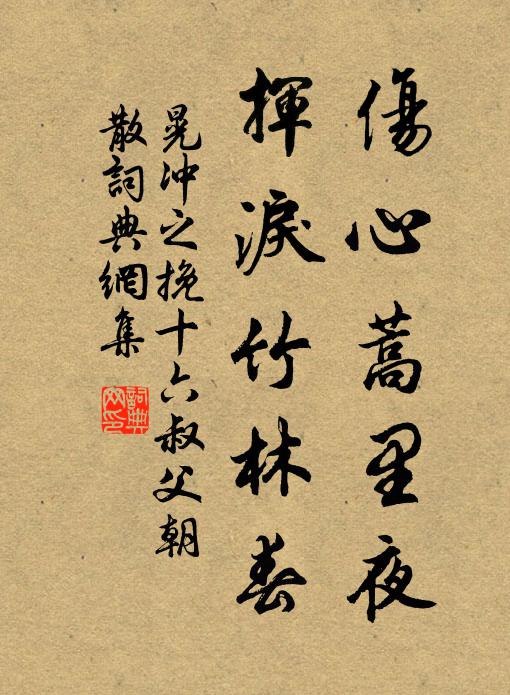 傷心蒿里夜
揮淚竹林春
晁沖之挽十六叔父朝
散詞典網集
詞典
网印